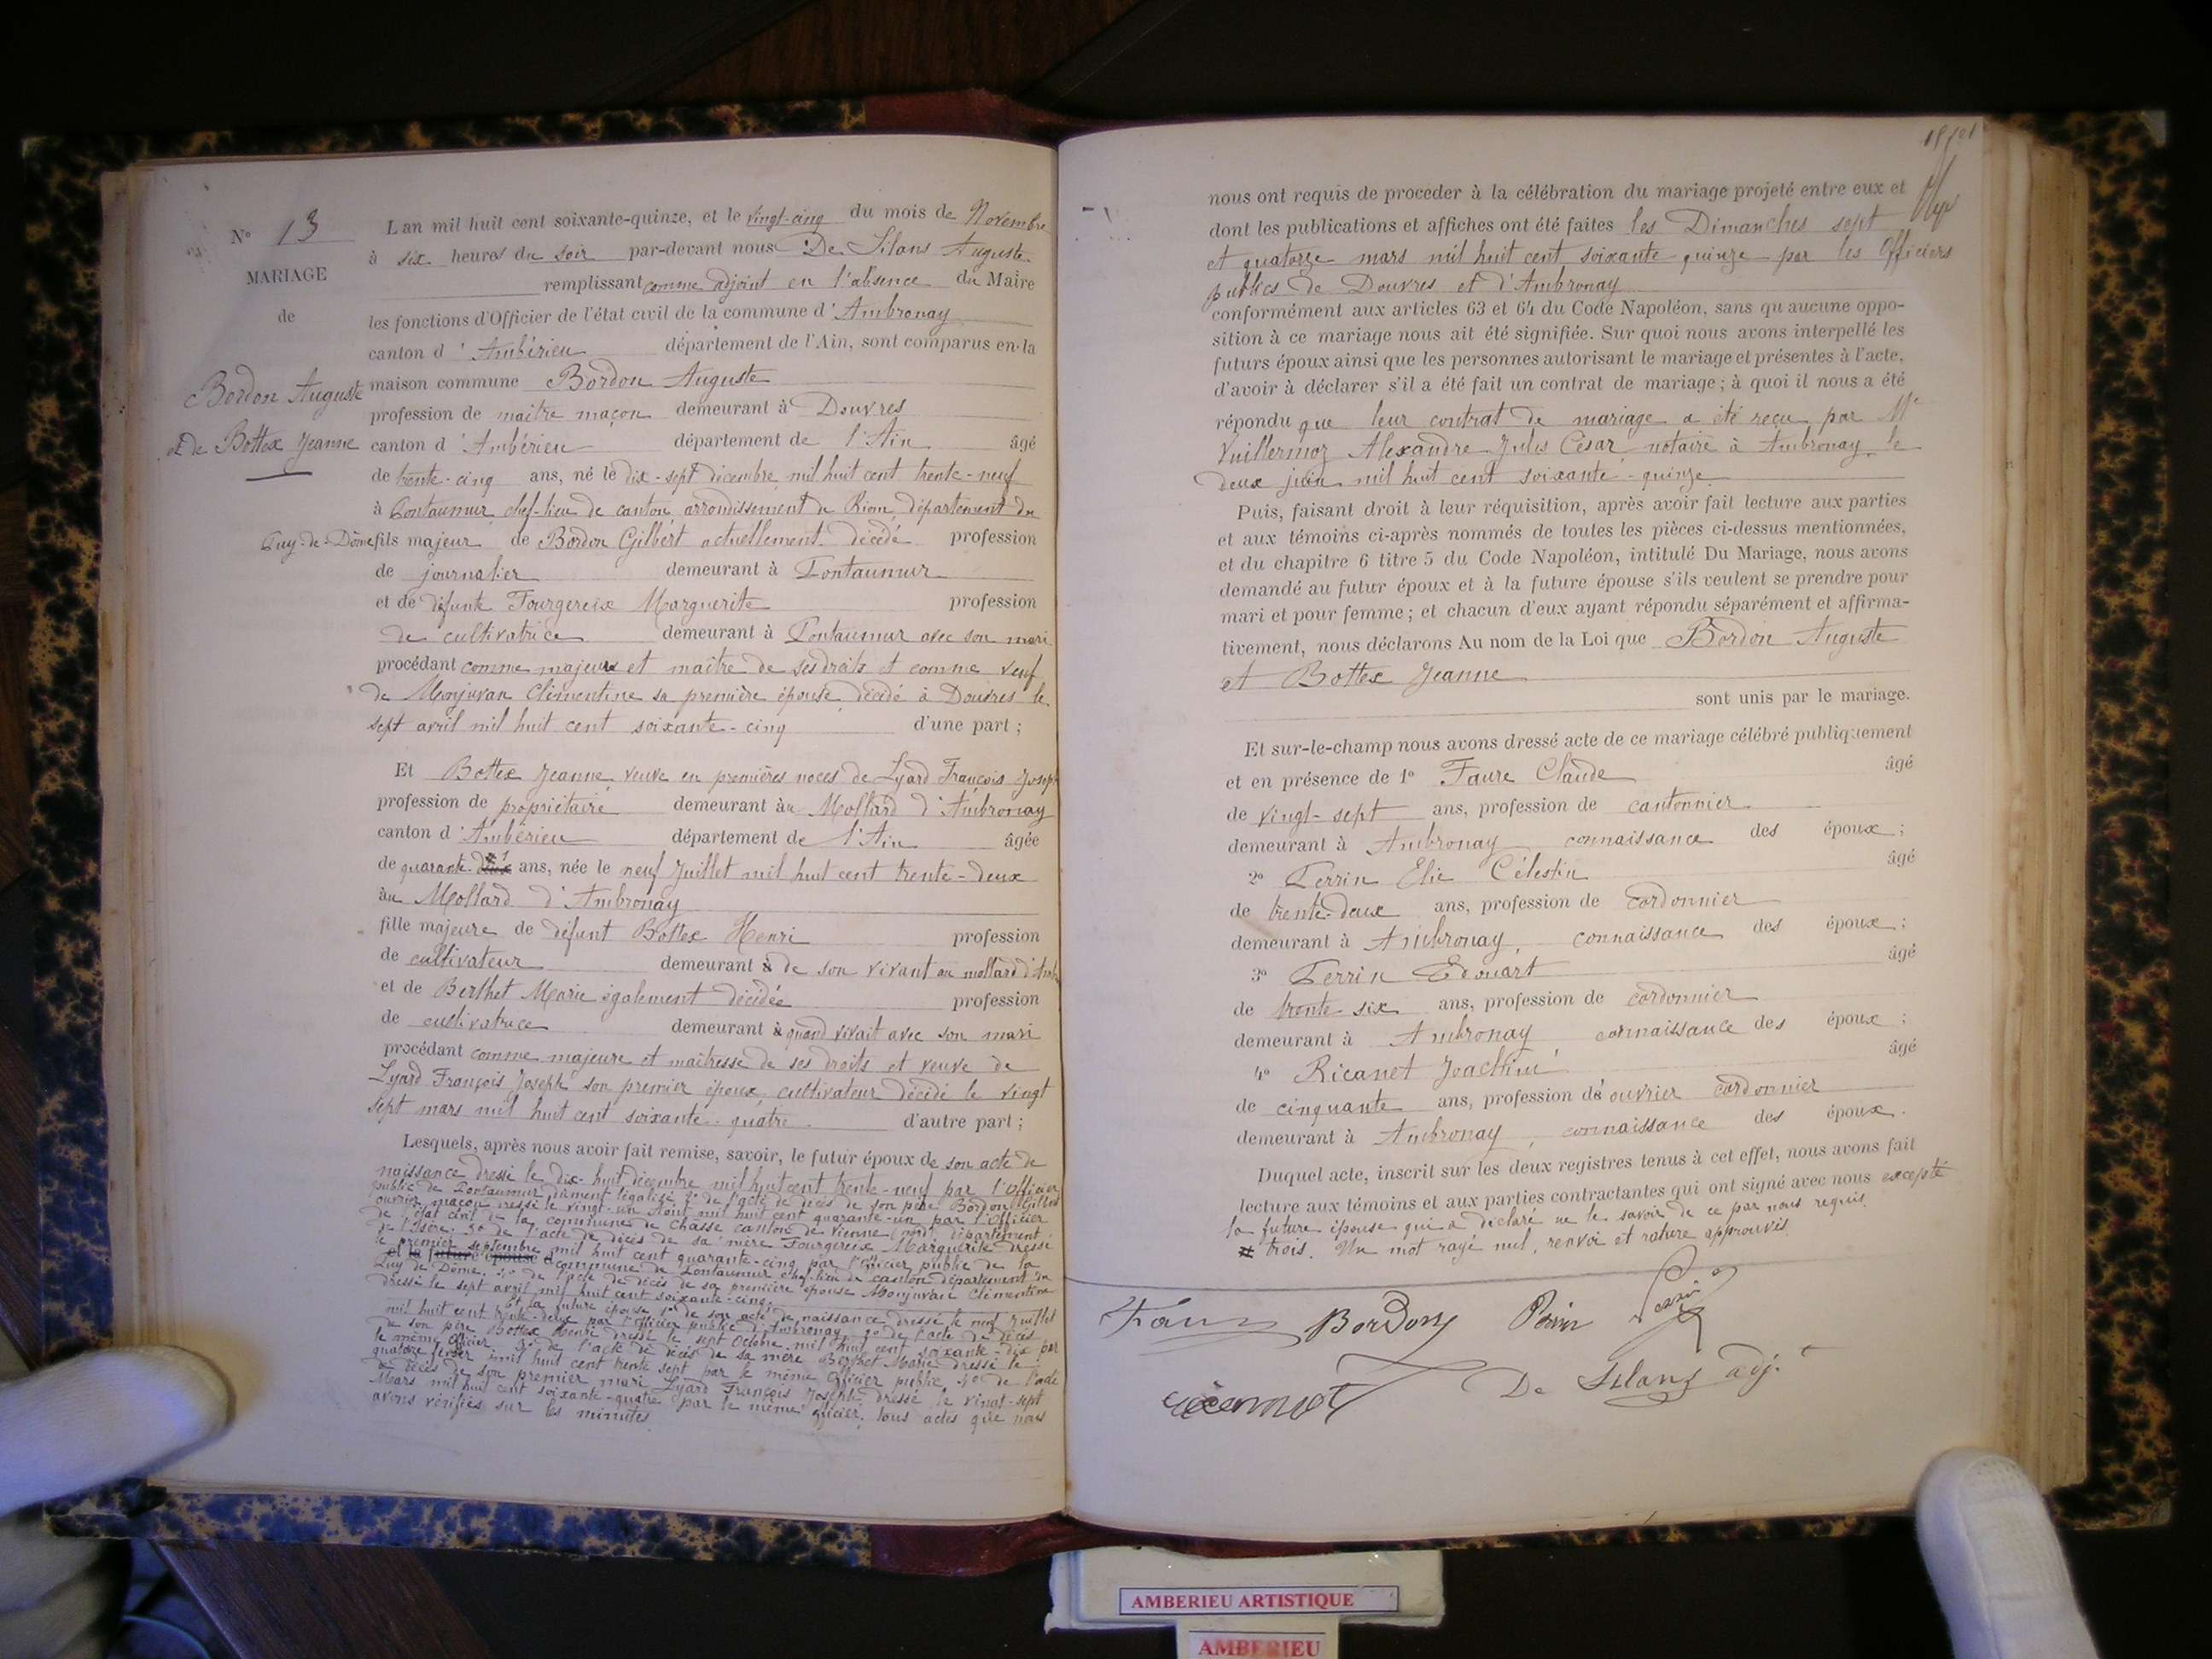 N° 13
MARIAGE
de
Bordon Auguste
et de Bottex Jeanne
L'an mil huit cent soixante-quinze, et le vingt-cinq du mois de Novembre
à six heures du soir par-devant nous De Silans Auguste
remplissant comme adjoint en l'absence du Maire
les fonctions d'Officier de l'état civil de la commune d'Ambronay
canton d'Ambérieu département de l'Ain, sont comparus en la
maison commune Bordon Auguste
profession de maître maçon demeurant à Douvres
canton d'Ambérieu département de l'Ain âgé
de trente-cinq ans, né le dix-sept décembre mil huit cent trente-neuf
à Pontaumur, chef-lieu de canton arrondissement de Riom, département du
Puy-de-Dôme fils majeur de Bordon Gilbert actuellement décédé profession
de journalier demeurant à Pontaumur
et de défunte Fourgereix Marguerite profession
de cultivatrice demeurant à Pontaumur avec son mari
procédant comme majeur et maître de ses droits et comme veuf
de Monjuvan Clémentine sa première épouse, décédé à Douvres le
sept avril mil huit cent soixante-cinq d'une part ;
Et Bottex Jeanne, veuve en premières noces de Lyard François Joseph
profession de propriétaire demeurant au Mollard d'Ambronay
canton d'Ambérieu département de l'Ain âgée
de quarante-deux # ans, née le neuf Juillet mil huit cent trente-deux
au Mollard d'Ambronay
fille majeure de défunt Bottex Henri profession
de cultivateur demeurant à de son vivant au mollard d'Amb
et de Berthet Marie également décédée profession
de cultivatrice demeurant à quand vivait avec son mari
procédant comme majeure et maitresse de ses droits et veuve de
Lyard François Joseph son premier époux, cultivateur décédé le vingt
sept mars mil huit cent soixante-quatre d'autre part ;
Lesquels, après nous avoir fait remise, savoir, le futur époux de son acte de
naissance dressé le dix-huit décembre mil huit cent trente-neuf par l'Officier
public de Pontaumur, dûment légalisé 2° de l'acte de décès de son père Bordon Gilbert
ouvrier maçon dressé le vingt-un Août mil huit cent quarante-un par l'Officier
de l'état civil de la commune de Chasse canton de Vienne (nord) département
de l'Isère. 3° de l'acte de décès de sa mère Fourgereix Marguerite dressé
le premier septembre mil huit cent quarante-cinq par l'officier public de la
et la future épouse d commune de Pontaumur chef-lieu de canton département du
Puy de Dôme. 4° de l'acte de décès de sa première épouse Monjuvan Clémentine
dressé le sept avril mil huit cent soixante-cinq.
Et la future épouse 1° de son acte de naissance dressé le neuf Juillet
mil huit cent trente-deux par l'officier public d'Ambronay 2° de l'acte de décès
de son père Bottex Henri dressé le sept Octobre mil huit cent soixante-dix par
le même Officier 3° de l'acte de décès de sa mère Berthet Marie dressé le
quatorze février mil huit cent trente sept par le même Officier public 4° de l'acte
de décès de son premier mari Lyard François Joseph dressé le vingt-sept
Mars mil huit cent soixante-quatre par le même officier, tous actes que nous
avons vérifiés sur les minutes
nous ont requis de proceder à la célébration du mariage projeté entre eux et
dont les publications et affiches ont été faites les Dimanches sept
et quatorze mars mil huit cent soixante-quinze par les Officiers
publics de Douvres et d'Ambronay
conformément aux articles 63 et 64 du Code Napoléon, sans qu'aucune oppo-
sition à ce mariage nous ait été signifiée. Sur quoi nous avons interpellé les
futurs époux ainsi que les personnes autorisant le mariage et présentes à l'acte,
d'avoir à déclarer s'il a été fait un contrat de mariage ; à quoi il nous a été
répondu que leur contrat de mariage a été reçu par Me
Vuillermoz Alexandre Jules César notaire à Ambronay le
deux juin mil huit cent soixante-quinze
Puis, faisant droit à leur réquisition, après avoir fait lecture aux parties
et aux témoins ci-après nommés de toutes les pièces ci-dessus mentionnées,
et du chapitre 6 titre 5 du Code Napoléon, intitulé Du Mariage, nous avons
demandé au futur époux et à la future épouse s'ils veulent se prendre pour
mari et pour femme ; et chacun d'eux ayant répondu séparément et affirma-
tivement, nous déclarons Au nom de la Loi que Bordon Auguste
et Bottex Jeanne
sont unis par le mariage.
Et sur-le-champ nous avons dressé acte de ce mariage célébré publiquement
et en présence de 1° Faure Claude âgé
de vingt-sept ans, profession de cantonnier
demeurant à Ambronay connaissance des époux ;
2° Perrin Elie Célestin âgé
de trente-deux ans, profession de cordonnier
demeurant à Ambronay, connaissance des époux ;
3° Perrin Edouart âgé
de trente-six ans, profession de cordonnier
demeurant à Ambronay connaissance des époux ;
4° Ricanet Joachim âgé
de cinquante ans, profession d'ouvrier cordonnier
demeurant à Ambronay, connaissance des époux.
Duquel acte, inscrit sur les deux registres tenus à cet effet, nous avons fait
lecture aux témoins et aux parties contractantes qui ont signé avec nous excepté
la future épouse qui a déclaré ne le savoir de ce par nous requis.
# trois. Un mot rayé nul, renvoi et rature approuvés.
Bordon Perrin
De Silans adj.t
AMBERIEU ARTISTIQUE
AMBERIEU